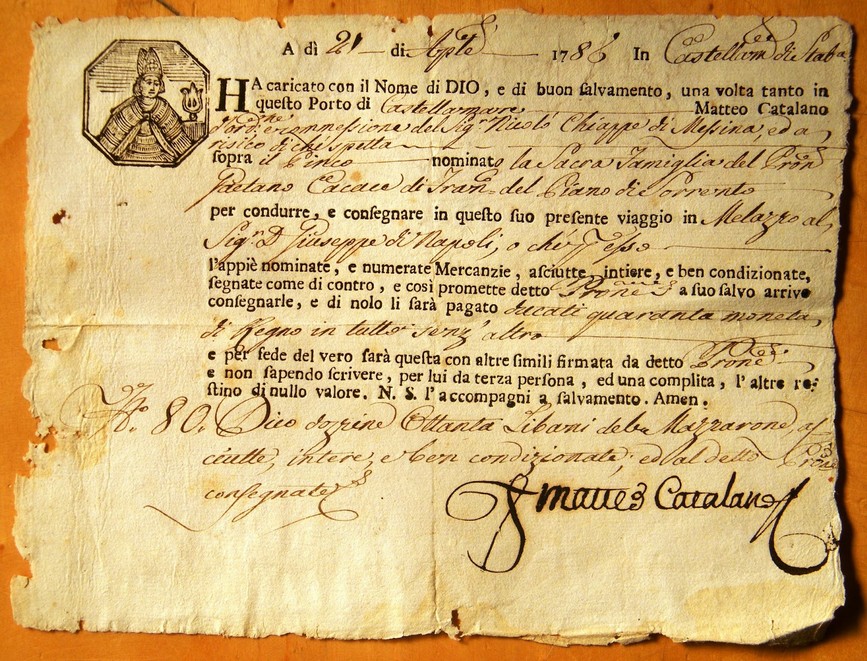 A dì 21 di Aple 1786 In Castellam.re di Staba
HA caricato con il Nome di DIO, e di buon salvamento, una volta tanto in
questo Porto di Castellamare Matteo Catalano
d'ord.e e commessione del Sig.r Nicolò Chiappe di Messina, ed a
risico di chi spetta
sopra il Pinco nominato la Sacra Famiglia del Pron.
Gaetano Cacace di Fran. del Piano di Sorrento
per condurre, e consegnare in questo suo presente viaggio in Melazzo al
Sig.r D. Giuseppe di Napoli, o chi p esso
l'appiè nominate, e numerate Mercanzie, asciutte, intiere, e ben condizionate,
segnate come di contro, e così promette detto Prone a suo salvo arrivo
consegnarle, e di nolo li sarà pagato ducati quaranta moneta
di Regno in tutto senz' altro
e per fede del vero sarà questa con altre simili firmata da detto Prone
e non sapendo scrivere, per lui da terza persona, ed una complita, l'altre re-
stino di nullo valore. N. S. l'accompagni a salvamento. Amen.
N.o 80. Dico dozzine Ottanta Libani de Mazzarone, as
ciutte, intere, e ben condizionate, ed al detto Prone
consegnate
Matteo Catalano